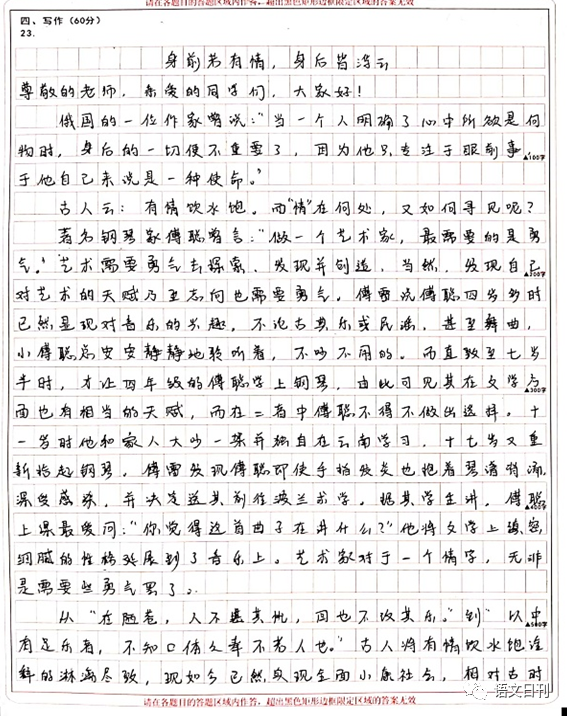 请在各题目的答题区域内作答,超出黑色矩形边框限定区域的答案无效
四、写作(60分)
23.
身前若有情,身后皆浮云
尊敬的老师,亲爱的同学们,大家好!
俄国的一位作家曾说:“当一个人明确了心中所欲是何
物时,身后的一切便不重要了,因为他只专注于眼前事,
▲100字
于他自己来说是一种使命。”
古人云:有情饮水饱。而“情”在何处,又如何寻见呢?
著名钢琴家傅聪曾言:“做一个艺术家,最需要的是勇
气。”艺术需要勇气去探索、发现并创造,当然,发现自己
▲200字
对艺术的天赋乃至志向也需要勇气。傅雷说傅聪四岁多时
已然显现对音乐的兴趣,不论古典乐或民谣,甚至舞曲,
小傅聪总安安静静地聆听着,不吵不闹的。而直致至七岁
半时,才让四年级的傅聪学上钢琴,由此可见其在文学方
▲300字
面也有相当的天赋,而在二者中傅聪不得不做出选择。十
一岁时他和家人大吵一架并独自在云南学习,十七岁又重
新拾起钢琴,傅雷发现傅聪即使手指发炎也抱着琴谱背诵,
深受感染,并决定送其前往波兰求学。据其学生讲,傅聪
▲400字
上课最爱问:“你觉得这首曲子在讲什么?”他将文学上缜密
细腻的性格发展到了音乐上。艺术家对于一个情字,无非
是需要些勇气罢了。
从“在陋巷,人不堪其忧,回也不改其乐。”到“以中
▲500字
有足乐者,不知口体之奉不若人也。”古人将有情饮水饱诠
释的淋漓尽致,现如今已然实现全面小康社会,相对古时
请在各题目的答题区域内作答,超出黑色矩形边框限定区域的答案无效
语文日刊